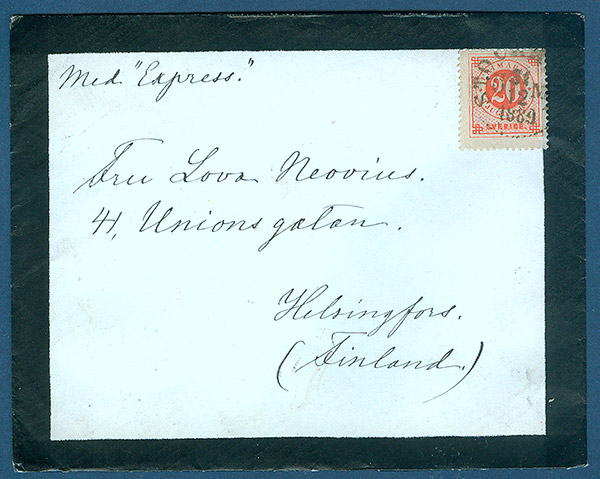 Med "Express."
20
SVERIGE.
1889
Fru Lova Neovius.
41, Unionsgatan.
Helsingfors.
(Finland.)